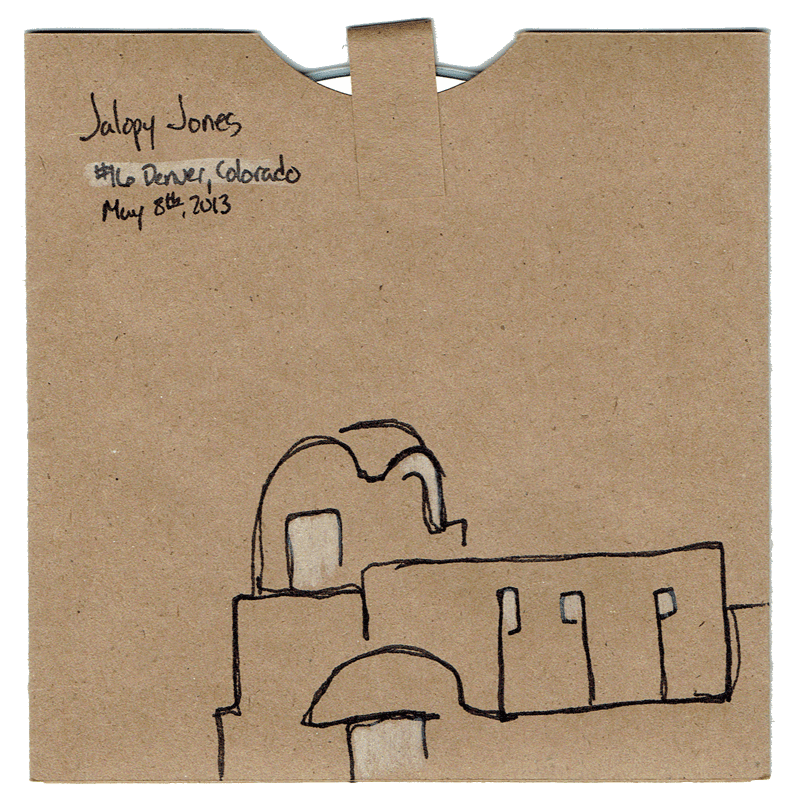 Jalopy Jones
#16 Denver, Colorado
May 8th, 2013